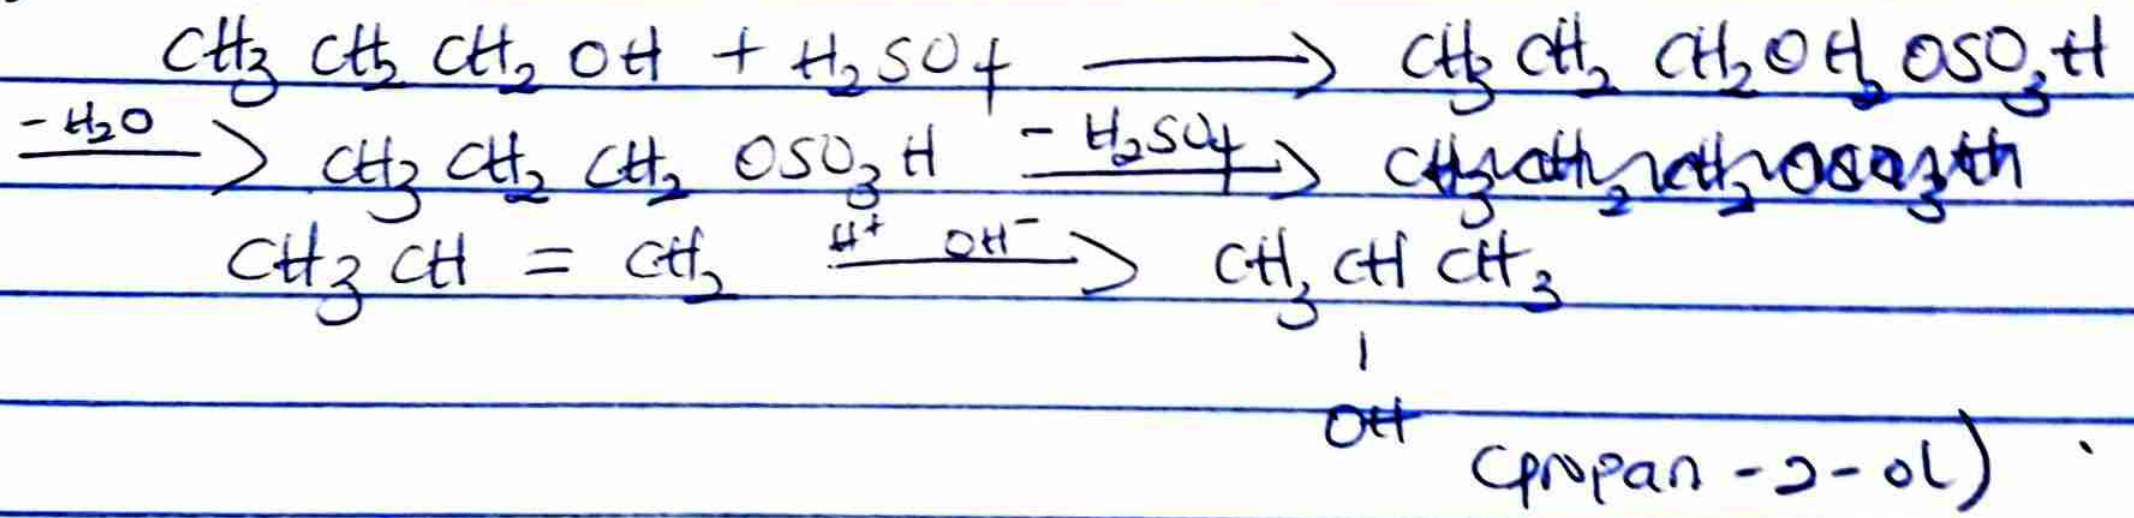 CH₃ CH₂ CH₂ OH + H₂SO₄ ⟶ CH₃ CH₂ CH₂OH₂ OSO₃H
-H₂O ⟶ CH₃ CH₂ CH₂ OSO₃H -H₂SO₄ ⟶
CH₃ CH = CH₂ H⁺ OH⁻ ⟶ CH₃ CH CH₃
|
OH
(propan-2-ol) .